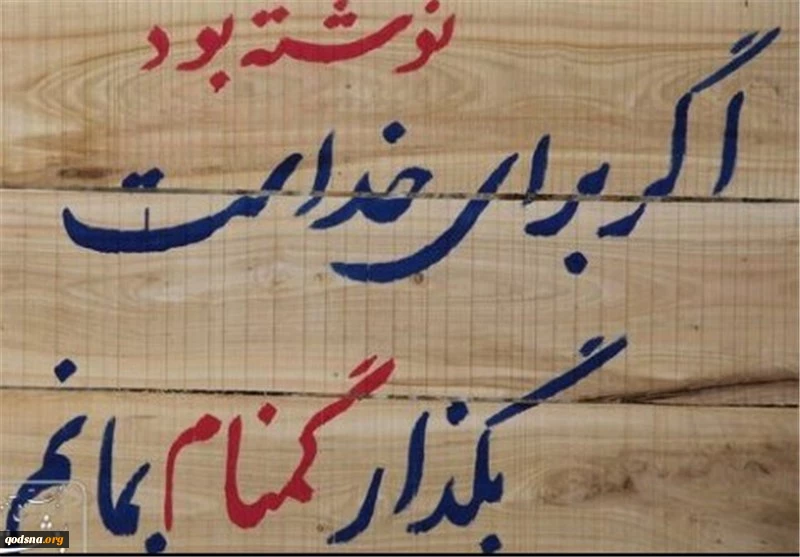 نوشته بود
اگر برای خداست
بگذار گمنام بمانم
qodsna.org